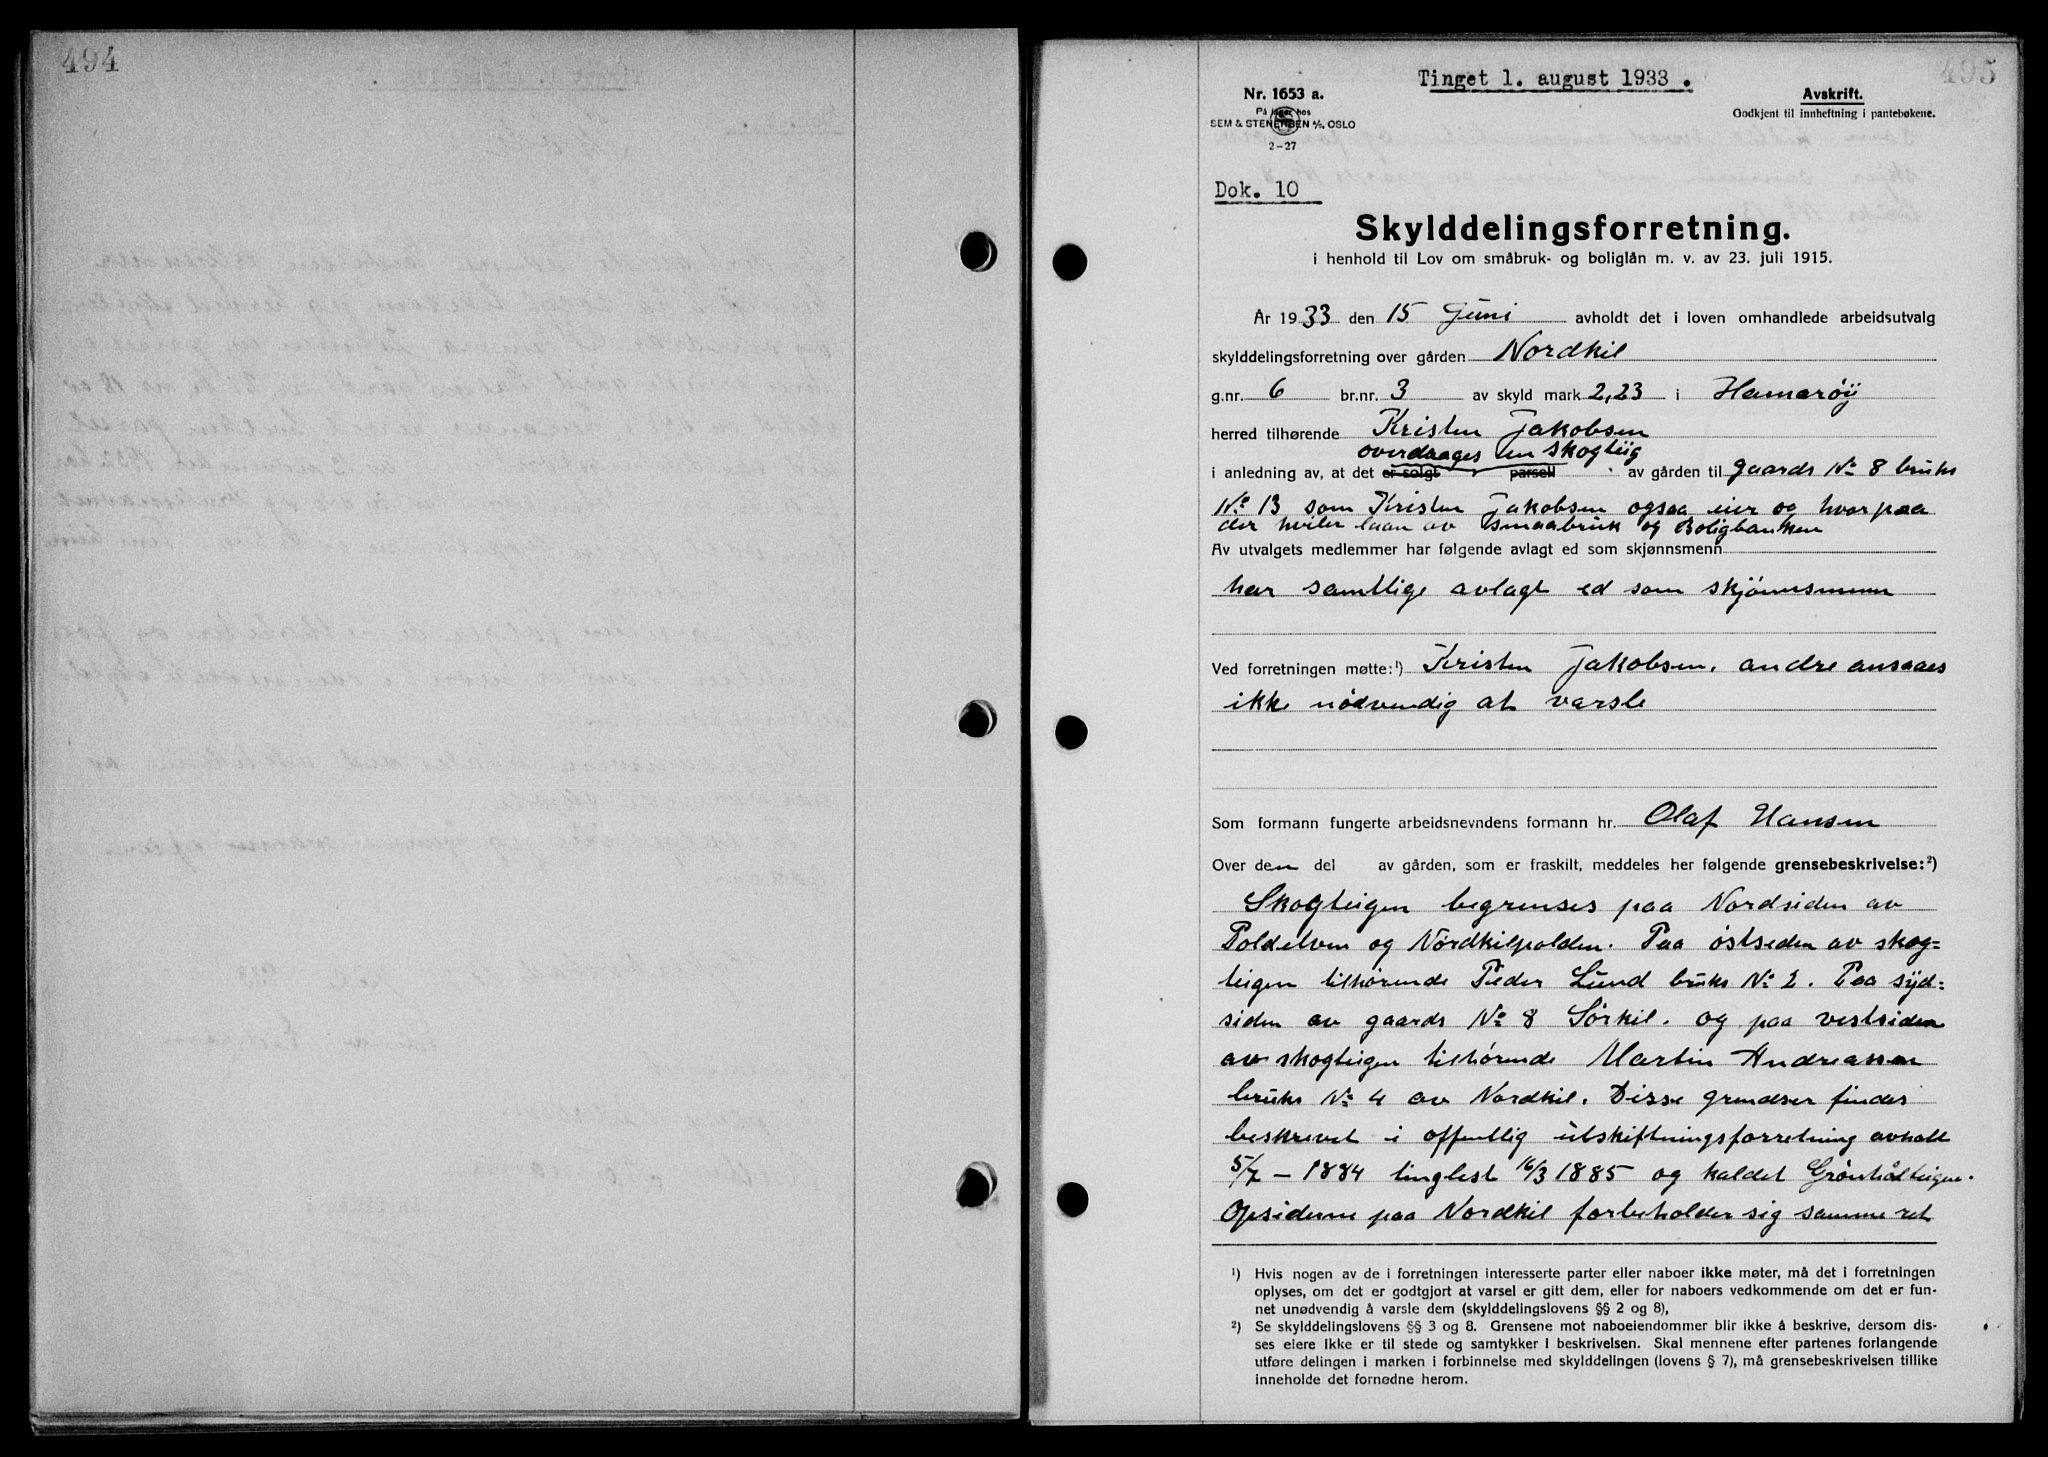 494
495
Tinget 1. august 1933.
Nr. 1653 a.
På lager hos
SEM & STENERSEN A/S, OSLO
2-27
Avskrift.
Godkjent til innheftning i pantebøkene.
Dok. 10
Skylddelingsforretning.
i henhold til Lov om småbruk- og boliglån m. v. av 23. juli 1915.
År 1933 den 15 Juni avholdt det i loven omhandlede arbeidsutvalg
skylddelingsforretning over gården Nordkil
g.nr. 6 br.nr. 3 av skyld mark 2,23 i Hamarøy
herred tilhørende Kristen Jakobsen
overdraages en skogteig
i anledning av, at det er solgt parsell av gården til gaards No 8 bruks
No 13 som Kristen Jakobsen ogsaa eier og hvorpaa
der hviler laan av Smaabruk og Boligbanken
Av utvalgets medlemmer har følgende avlagt ed som skjønnsmenn
har samtlige avlagt ed som skjønnsmenn
Ved forretningen møtte:¹) Kristen Jakobsen. andre ansaaes
ikke nødvendig at varsle
Som formann fungerte arbeidsnevndens formann hr. Olaf Hansen
Over den del av gården, som er fraskilt, meddeles her følgende grensebeskrivelse:²)
Skogteigen begrenses paa Nordsiden av
Poldelven og Nordkilpolden. Paa østseden av skog=
teigen tilhørende Peder Lund bruks No 2. Paa syd=
siden av gaards No 8 Sørkil. og paa vestsiden
av skogteigen tilhørende Martin Andreassen
bruks No 4 av Nordkil. Disse grendser findes
beskrevet i offentlig utskiftningsforretning avholt
5/7 - 1884 tinglest 16/3 1885 og kaldet Grønhålteigen.
Opsiderne paa Nordkil forbeholder sig samme ret
¹) Hvis nogen av de i forretningen interesserte parter eller naboer ikke møter, må det i forretningen
oplyses, om det er godtgjort at varsel er gitt dem, eller for naboers vedkommende om det er fun-
net unødvendig å varsle dem (skylddelingslovens §§ 2 og 8),
²) Se skylddelingslovens §§ 3 og 8. Grensene mot naboeiendommer blir ikke å beskrive, dersom dis-
ses eiere ikke er til stede og samtykker i beskrivelsen. Skal mennene efter partenes forlangende
utføre delingen i marken i forbinnelse med skylddelingen (lovens § 7), må grensebeskrivelsen tillike
inneholde det fornødne herom.